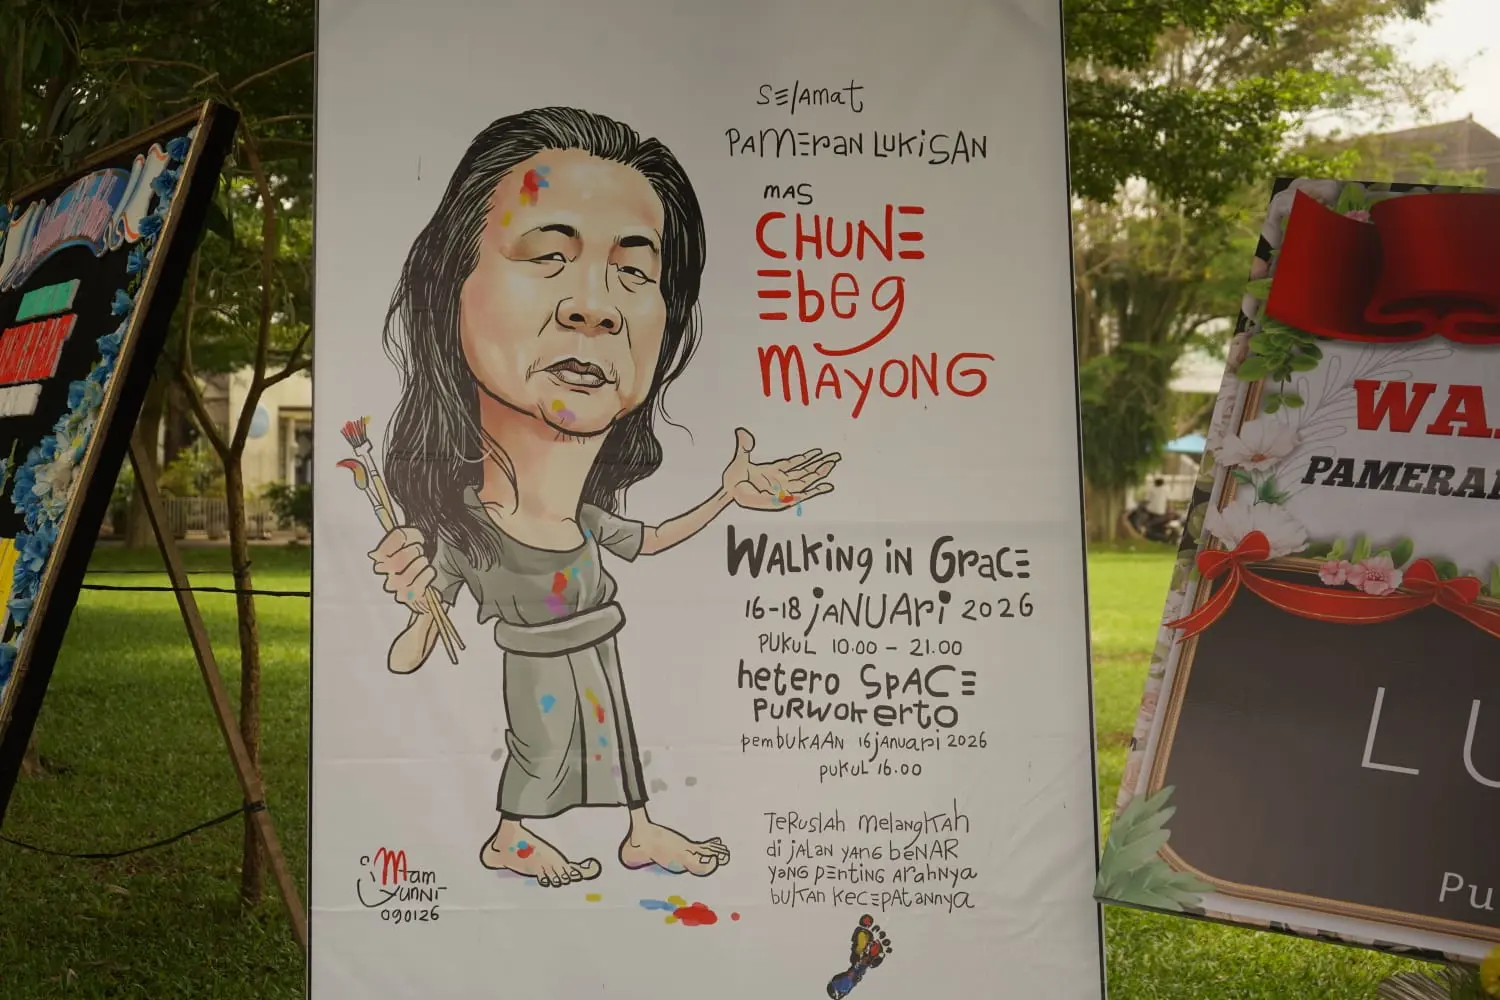 Selamat
Pameran Lukisan
mas
CHUNE
Ebeg
MAYONG
Walking in Grace
16-18 januari 2026
PUKUL 10.00 - 21.00
hetero SPACE
PURWOKerto
pembukaan 16 januari 2026
pukul 16.00
Teruslah melangkah
di jalan yang benar
yang penting arahnya
bukan kecepatannya
Mam
Yunni
090126
WA
PAMERA
LU
Pu